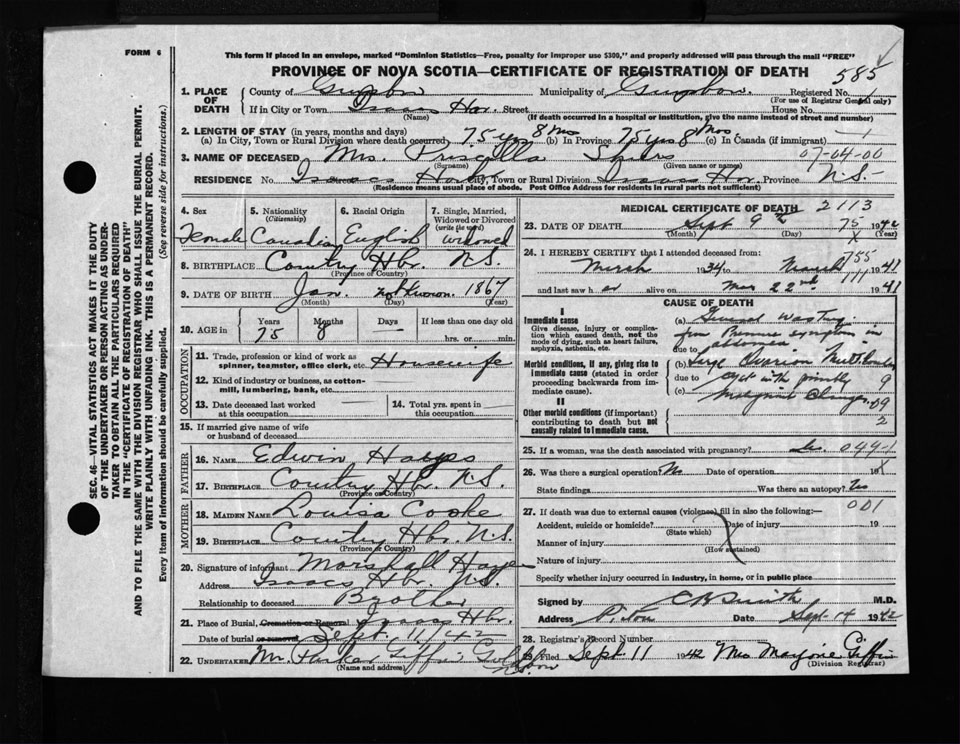 FORM 6
This form if placed in an envelope, marked "Dominion Statistics—Free, penalty for improper use $300," and properly addressed will pass through the mail "FREE"
PROVINCE OF NOVA SCOTIA—CERTIFICATE OF REGISTRATION OF DEATH 585
1. PLACE OF DEATH County of Guysboro Municipality of Guysboro. Registered No.
(For use of Registrar General only)
If in City or Town Isaacs Har. Street House No.
(Name) (If death occurred in a hospital or institution, give the name instead of street and number)
2. LENGTH OF STAY (in years, months and days)
(a) In City, Town or Rural Division where death occurred 75 yrs 8 Mos (b) In Province 75 yrs 8 Mos (c) In Canada (if immigrant)
3. NAME OF DECEASED Mrs. Priscilla 07-04-00
(Surname) (Given name or names)
RESIDENCE No. Isaacs Harbor Street City, Town or Rural Division Isaacs Har. Province N.S.-
(Residence means usual place of abode. Post Office Address for residents in rural parts not sufficient)
4. Sex 5. Nationality (Citizenship) 6. Racial Origin 7. Single, Married, Widowed or Divorced (write the word)
Female Canadian English Widowed
8. BIRTHPLACE Country Hbr. N.S.
(Province or Country)
9. DATE OF BIRTH Jan. not known 1867
(Month) (Day) (Year)
10. AGE in Years Months Days If less than one day old
75 8 — hrs. or min.
OCCUPATION
11. Trade, profession or kind of work as spinner, teamster, office clerk, etc. Housewife
12. Kind of industry or business, as cotton-mill, lumbering, bank, etc.
13. Date deceased last worked at this occupation 14. Total yrs. spent in this occupation
15. If married give name of wife or husband of deceased
FATHER
16. NAME Edwin Hayes
17. BIRTHPLACE Country Hr. N.S.
(Province or Country)
MOTHER
18. MAIDEN NAME Louisa Cooke
19. BIRTHPLACE Country Hbr. N.S.
(Province or Country)
20. Signature of informant Marshall Hayes
Address Isaacs Hbr. N.S.
Relationship to deceased Brother
21. Place of Burial, Cremation or Removal Isaacs Hbr.
Date of burial or removal Sept. 11/42
22. UNDERTAKER Mr. Parker Giffin
(Name and address) N.S.
MEDICAL CERTIFICATE OF DEATH 2113
23. DATE OF DEATH Sept 9th 75 1942
(Month) (Day) (Year)
24. I HEREBY CERTIFY that I attended deceased from:
March 1934 to March 1941
and last saw her alive on Mar 22nd 1941
CAUSE OF DEATH
I
Immediate cause
Give disease, injury or complication which caused death, not the mode of dying, such as heart failure, asphyxia, asthenia, etc.
(a) General wasting
from Pressure symptoms in
due to abdomen
Morbid conditions, if any, giving rise to immediate cause (stated in order proceeding backwards from immediate cause).
(b) Large Ovarian
due to cyst with possibly 9
(c) 09
II
Other morbid conditions (if important) contributing to death but not causally related to immediate cause.
2
25. If a woman, was the death associated with pregnancy? 0491
26. Was there a surgical operation? No Date of operation 19
State findings Was there an autopsy? No
27. If death was due to external causes (violence) fill in also the following:- 001
Accident, suicide or homicide? Date of injury 19
(State which)
Manner of injury
(How sustained)
Nature of injury
Specify whether injury occurred in industry, in home, or in public place
Signed by C B Smith M.D.
Address Date Sept 14 1942
28. Registrar's Record Number
Filed Sept 11 1942 Mrs Marjorie Giffin
(Division Registrar)
SEC. 46—VITAL STATISTICS ACT MAKES IT THE DUTY
OF THE UNDERTAKER OR PERSON ACTING AS UNDER-
TAKER TO OBTAIN ALL THE PARTICULARS REQUIRED
IN THE "CERTIFICATE OF REGISTRATION OF DEATH"
AND TO FILE THE SAME WITH THE DIVISION REGISTRAR WHO SHALL ISSUE THE BURIAL PERMIT.
WRITE PLAINLY WITH UNFADING INK. THIS IS A PERMANENT RECORD.
Every item of information should be carefully supplied. (See reverse side for instructions.)